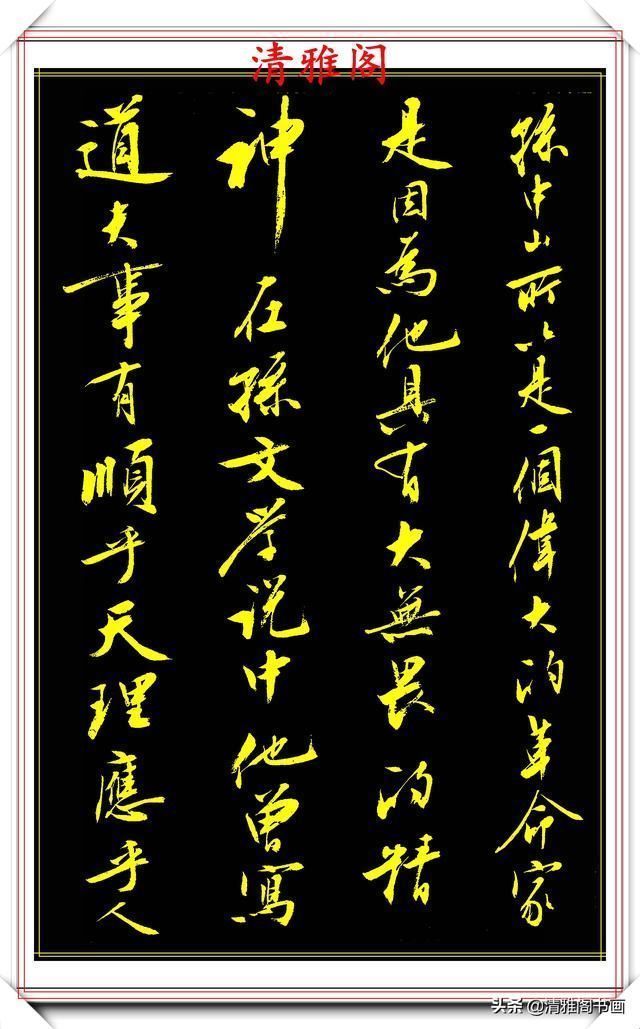 清雅阁
孫中山所以是一個偉大的革命家
是因為他具有大無畏的精
神在孫文学说中他曾寫
道夫事有順乎天理應乎人
头条@清雅阁书画